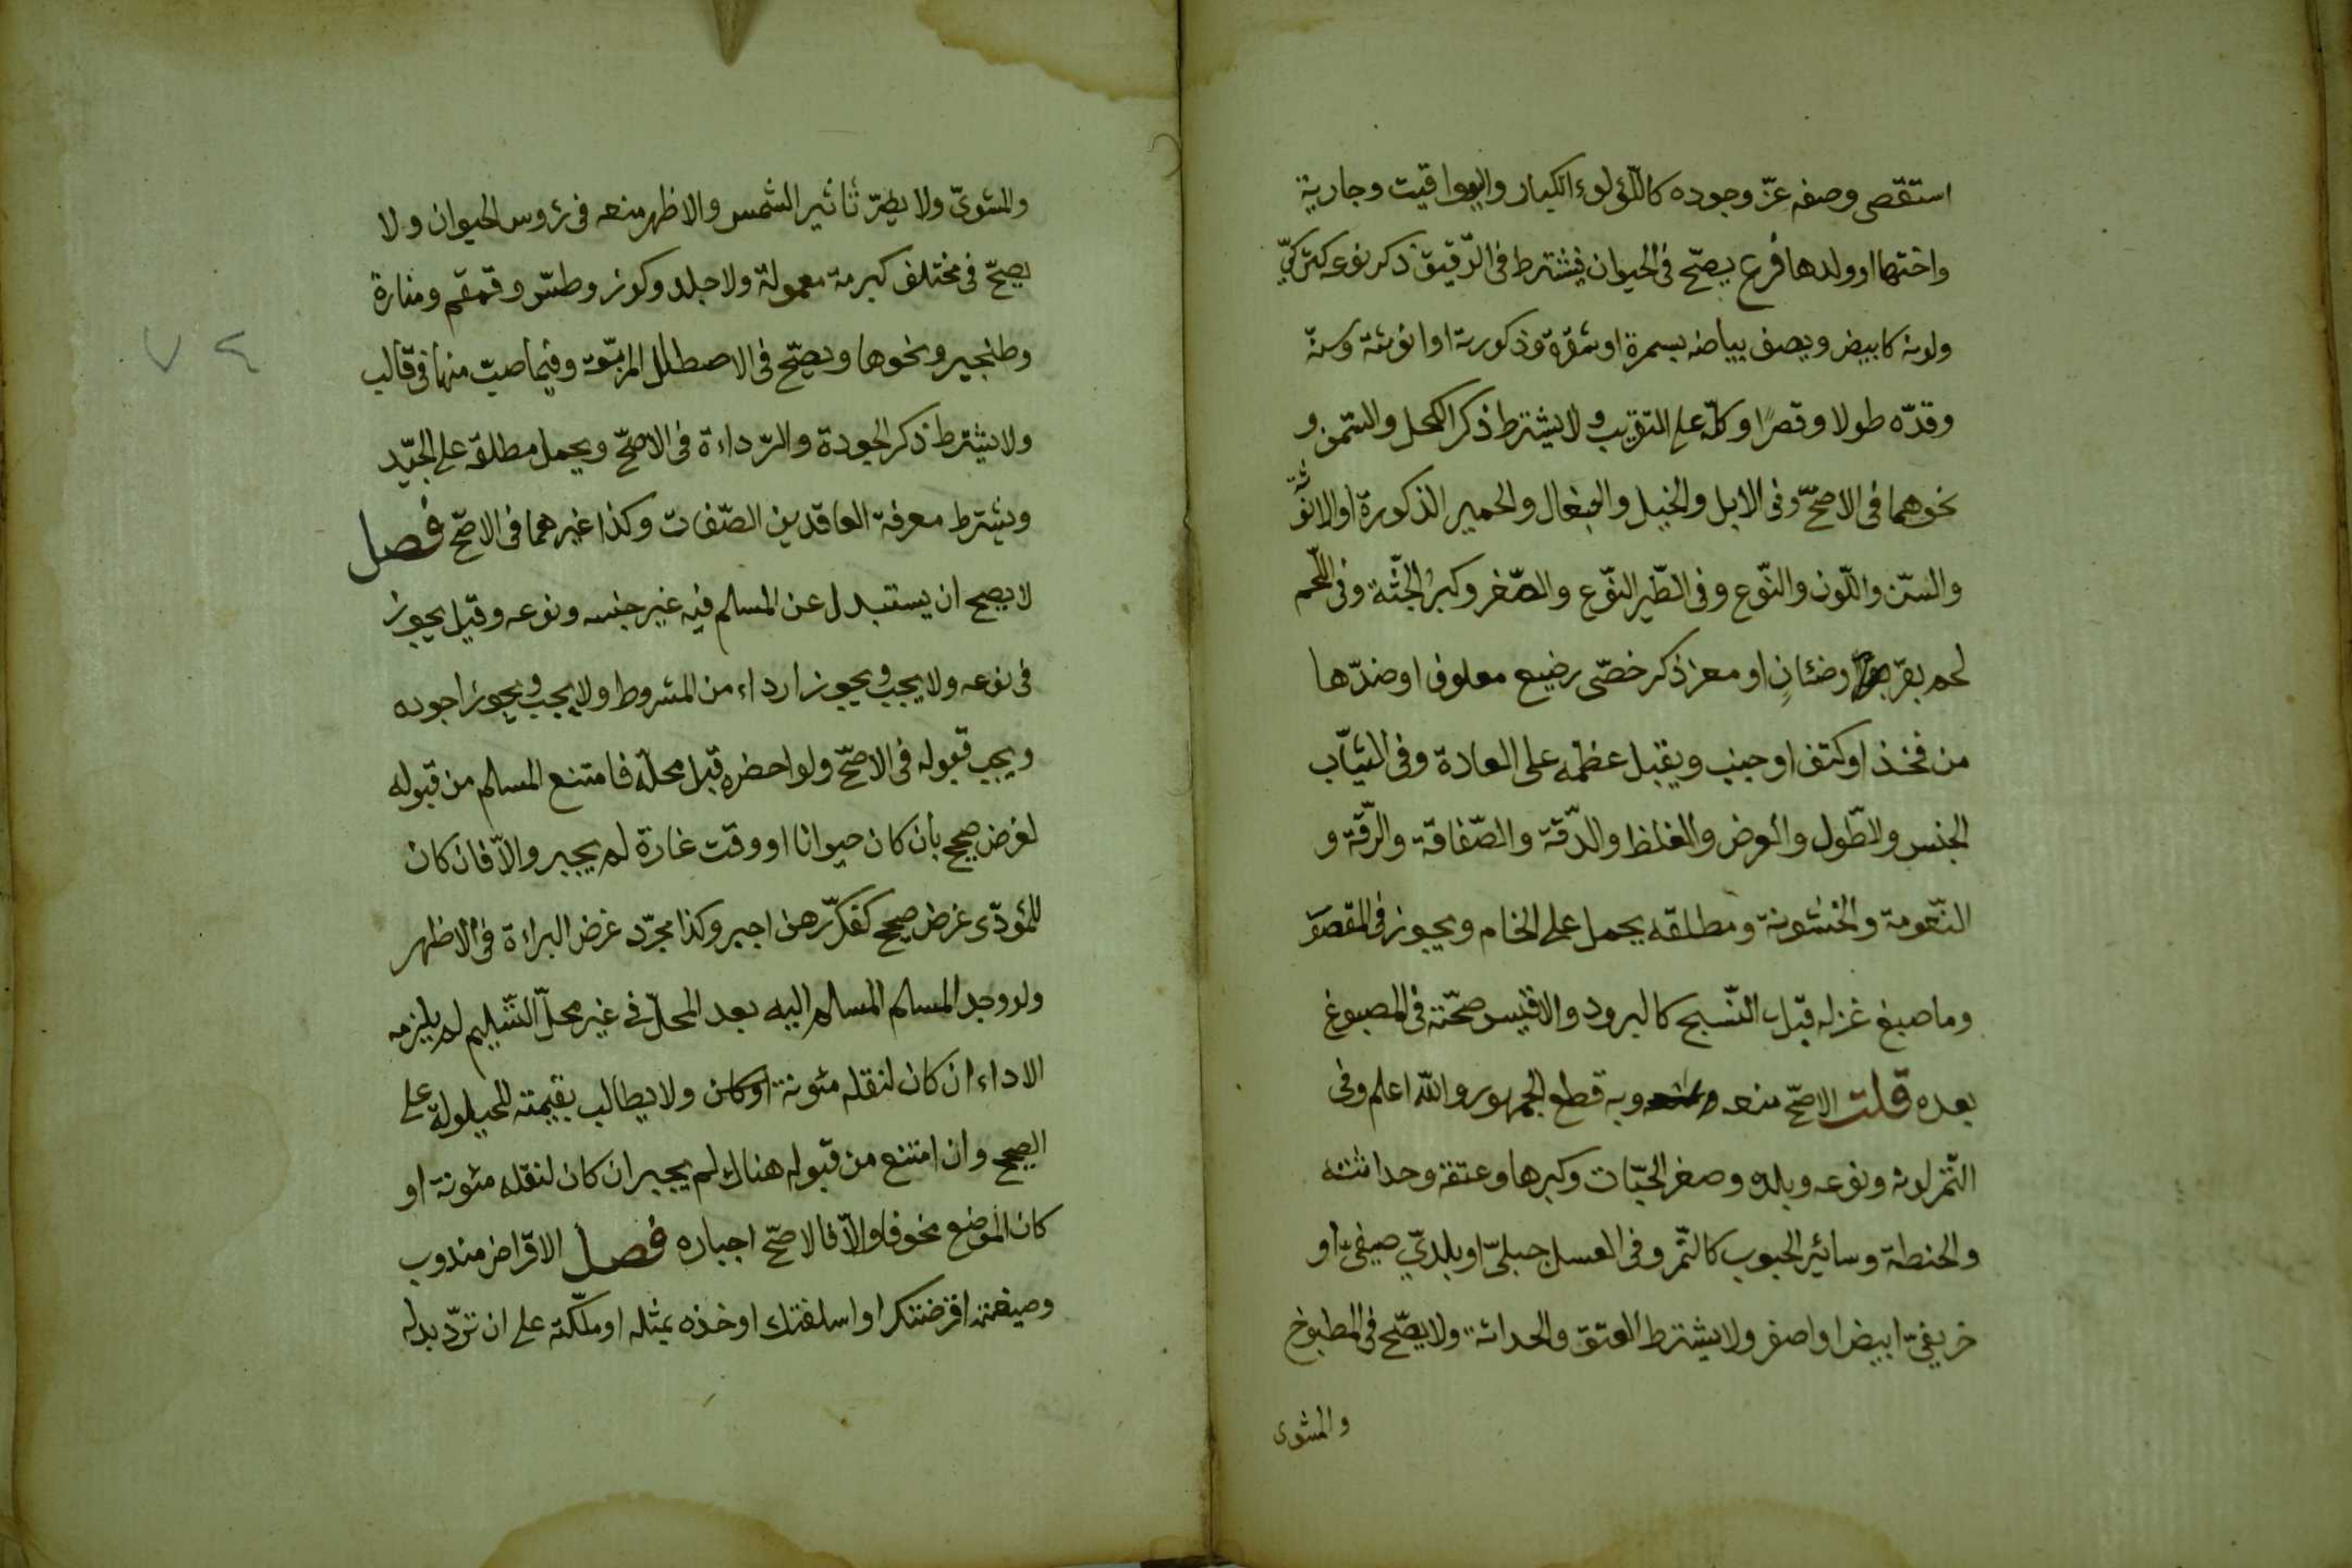 استقصى وصفه عزّ وجوده كاللّؤلؤء الكبار واليواقيت وجارية
واختها او ولدها فرع يصحّ فى الحيوان فيشترط فى الرّقيق ذكر نوعه كتركىّ
ولونه كابيض ويصف بياضه بسمرة او شقرة وذكورته او انوثته وسنّه
وقدّه طولا وقصرًا وكلّه على التقريب ولا يشترط ذكر الكحل والسّمن و
نحوهما فى الاصحّ وفى الابل والخيل والبغال والحمير الذكورة او الانوثة
والسّنّ واللّون والنّوع وفى الطّير النّوع والصّغر وكبر الجثّة وفى اللّحم
لحم بقر وضئان او معز ذكر خصّى رضيع معلوف او ضدّها
من فخذ او كتف او جنب ويقبل عظمه على العادة وفى الثيّاب
الجنس والطّول والعرض والغلظ والدّقة والصّفاقة والرّقّة و
النّعومة والخشونة ومطلقه يحمل على الخام ويجوز فى المقصور
وما صبغ غزله قبل النّسج كالبرود والاقيس صحّته فى المصبوغ
بعده قلت الاصحّ منعه وبه قطع الجمهور والله اعلم وفى
التّمر لونه ونوعه وبلده وصغر الحبّات وكبرها وعتقه وحداثته
والحنطة وسائير الحبوب كالتّمر وفى العسل جبلىّ او بلدىّ صيفىّ او
خريفىّ ابيض او اصفر ولا يشترط العتق والحداثة ولا يصّح فى المطبوخ
والمشوى
والمشوىّ ولا يضرّ تأثير الشّمس والاظهر منعه فى رؤوس الحيوان ولا
يصحّ فى مختلف كبرمة معمولة ولا جلد وكوز وطسّ وقمقم ومنارة
وطنجير ونحوها ويصحّ فى الاصطال المربّعة وفيما صبّ منها فى قالب
ولا يشترط ذكر الجودة والرّداءة فى الاصحّ ويحمل مطلقه على الجيّد
ويشترط معرفة العاقدين الصّفات وكذا غيرهما فى الاصحّ فصل
لا يصح ان يستبدل عن المسلم فيه غير جنسه ونوعه وقيل يجوز
فى نوعه ولا يجب ويجوز ارداء من المشروط ولا يجب ويجوز اجوده
ويجب قبوله فى الاصحّ ولو احضره قبل محلّه فامتنع المسلم من قبوله
لغرض صحيح بان كان حيوانا او وقت غارة لم يجبر والاّ فان كان
للمؤدّى غرض صحيح كفكّ رهن اجبر وكذا مجرّد غرض البراءة فى الاظهر
ولو وجد المسلم المسلم اليه بعد المحلّ فى غير محلّ التّسليم لم يلزمه
الاداء ان كان لنقله مئونة او كان ولا يطالب بقيمته للحيلولة على
الصحيح وان امتنع من قبوله هناك لم يجبر ان كان لنقله مئونة او
كان الموضع مخوفا والاّ فالاصحّ اجباره فصل الاقراض مندوب
وصيغته اقرضتك او اسلفتك او خذه بمثله او ملّكته على ان تردّ بدله
٧٤